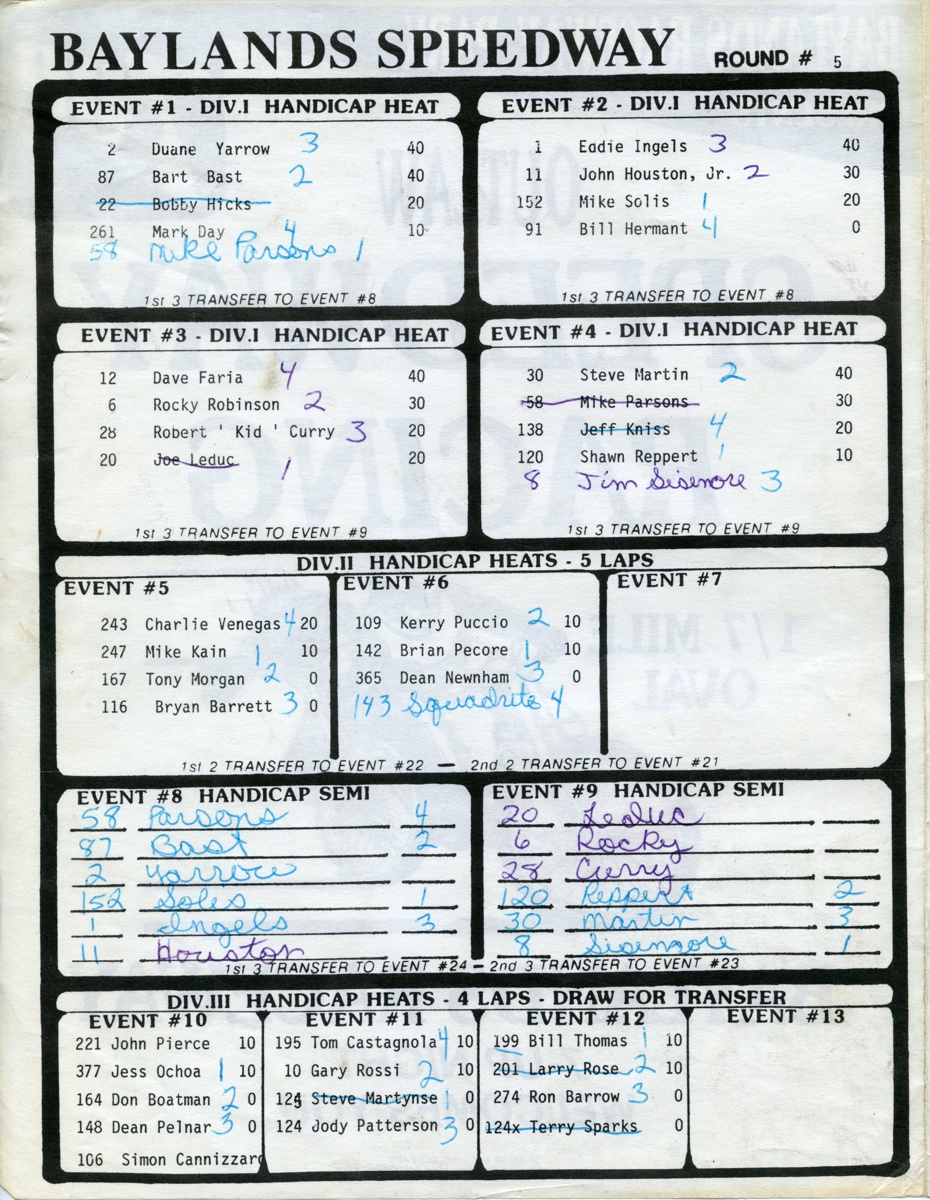 BAYLANDS SPEEDWAY ROUND # 5
EVENT #1 - DIV.I HANDICAP HEAT
2 Duane Yarrow 3 40
87 Bart Bast 2 40
22 Bobby Hicks 20
261 Mark Day 4 10
58 Mike Parsons 1
1st 3 TRANSFER TO EVENT #8
EVENT #2 - DIV.I HANDICAP HEAT
1 Eddie Ingels 3 40
11 John Houston, Jr. 2 30
152 Mike Solis 1 20
91 Bill Hermant 4 0
1st 3 TRANSFER TO EVENT #8
EVENT #3 - DIV.I HANDICAP HEAT
12 Dave Faria 4 40
6 Rocky Robinson 2 30
28 Robert ' Kid ' Curry 3 20
20 Joe Leduc 1 20
1st 3 TRANSFER TO EVENT #9
EVENT #4 - DIV.I HANDICAP HEAT
30 Steve Martin 2 40
58 Mike Parsons 30
138 Jeff Kniss 4 20
120 Shawn Reppert 1 10
8 Jim Sisemore 3
1st 3 TRANSFER TO EVENT #9
DIV.II HANDICAP HEATS - 5 LAPS
EVENT #5
243 Charlie Venegas 4 20
247 Mike Kain 1 10
167 Tony Morgan 2 0
116 Bryan Barrett 3 0
EVENT #6
109 Kerry Puccio 2 10
142 Brian Pecore 1 10
365 Dean Newnham 3 0
143 Squadrito 4
EVENT #7
1st 2 TRANSFER TO EVENT #22 — 2nd 2 TRANSFER TO EVENT #21
EVENT #8 HANDICAP SEMI
58 Parsons 4
87 Bast 2
2 Yarrow
152 Soles 1
1 Ingels 3
11 Houston
EVENT #9 HANDICAP SEMI
20 Leduc
6 Rocky
28 Curry
120 Reppert 2
30 Martin 3
8 Sisemore 1
1st 3 TRANSFER TO EVENT #24 - 2nd 3 TRANSFER TO EVENT #23
DIV.III HANDICAP HEATS - 4 LAPS - DRAW FOR TRANSFER
EVENT #10
221 John Pierce 10
377 Jess Ochoa 1 10
164 Don Boatman 2 0
148 Dean Pelnar 3 0
106 Simon Cannizzaro
EVENT #11
195 Tom Castagnola 4 10
10 Gary Rossi 2 10
Steve Martynse 1 0
124 Jody Patterson 3 0
EVENT #12
199 Bill Thomas 1 10
201 Larry Rose 2 10
274 Ron Barrow 3 0
124x Terry Sparks 0
EVENT #13